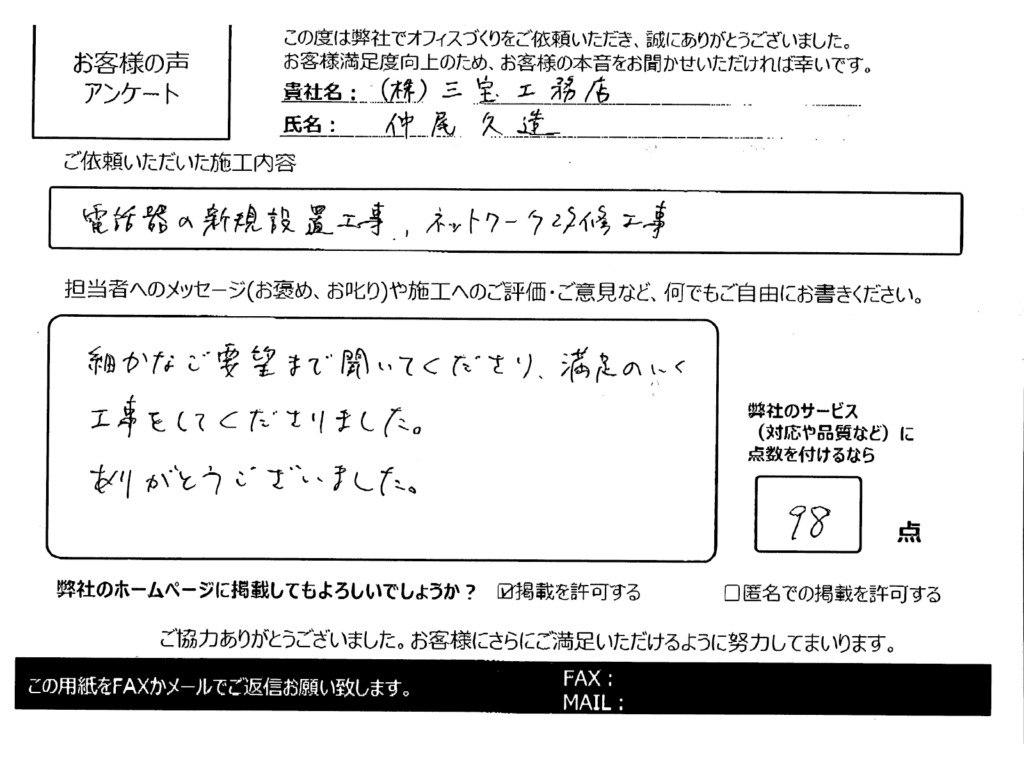 お客様の声
アンケート
この度は弊社でオフィスづくりをご依頼いただき、誠にありがとうございました。
お客様満足度向上のため、お客様の本音をお聞かせいただければ幸いです。
貴社名： (株) 三宝工務店
氏名： 仲尾久造
ご依頼いただいた施工内容
電話器の新規設置工事、ネットワーク改修工事
担当者へのメッセージ(お褒め、お叱り)や施工へのご評価・ご意見など、何でもご自由にお書きください。
細かなご要望まで聞いてくださり、満足のいく
工事をしてくださりました。
ありがとうございました。
弊社のサービス
（対応や品質など）に
点数を付けるなら
98 点
弊社のホームページに掲載してもよろしいでしょうか？ ☑掲載を許可する □匿名での掲載を許可する
ご協力ありがとうございました。お客様にさらにご満足いただけるように努力してまいります。
この用紙をFAXかメールでご返信お願い致します。
FAX：
MAIL：